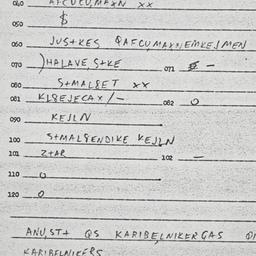 040 AFCUCU,MAXN XX
050 $
060 JUS+KES QAFCU,MAXN,EMKE,MEN
070 )HALAVE S+KE 071 $ -
080 S+MAL8ET XX
081 KL8EJECAX/- 082 0
090 KEJLN
100 S+MAL8ENDIKE KEJLN
101 Z+AR 102 -
110 0
120 0
ANU,ST+ QS KARIBE,NIKERGAS
KARIBELNIKERS